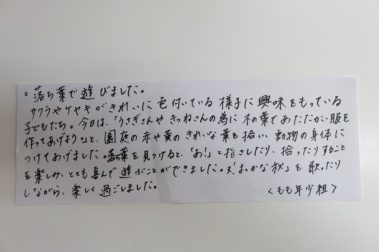 ○落ち葉で遊びました。
サクラやケヤキがきれいに色付いている様子に興味をもっている
子どもたち。今日は、「うさぎさんやきつねさんの為に木の葉であたたかい服を
作ってあげよう」と、園庭の赤や黄のきれいな葉を拾い、動物の身体に
つけてあげました。葉を見つけると、「あ!」と指さしたり、拾ったりすること
を楽しみ、とても喜んで遊ぶことができました。「まっかな秋」を歌ったり
しながら、楽しく過ごしました。
〈もも年少組〉